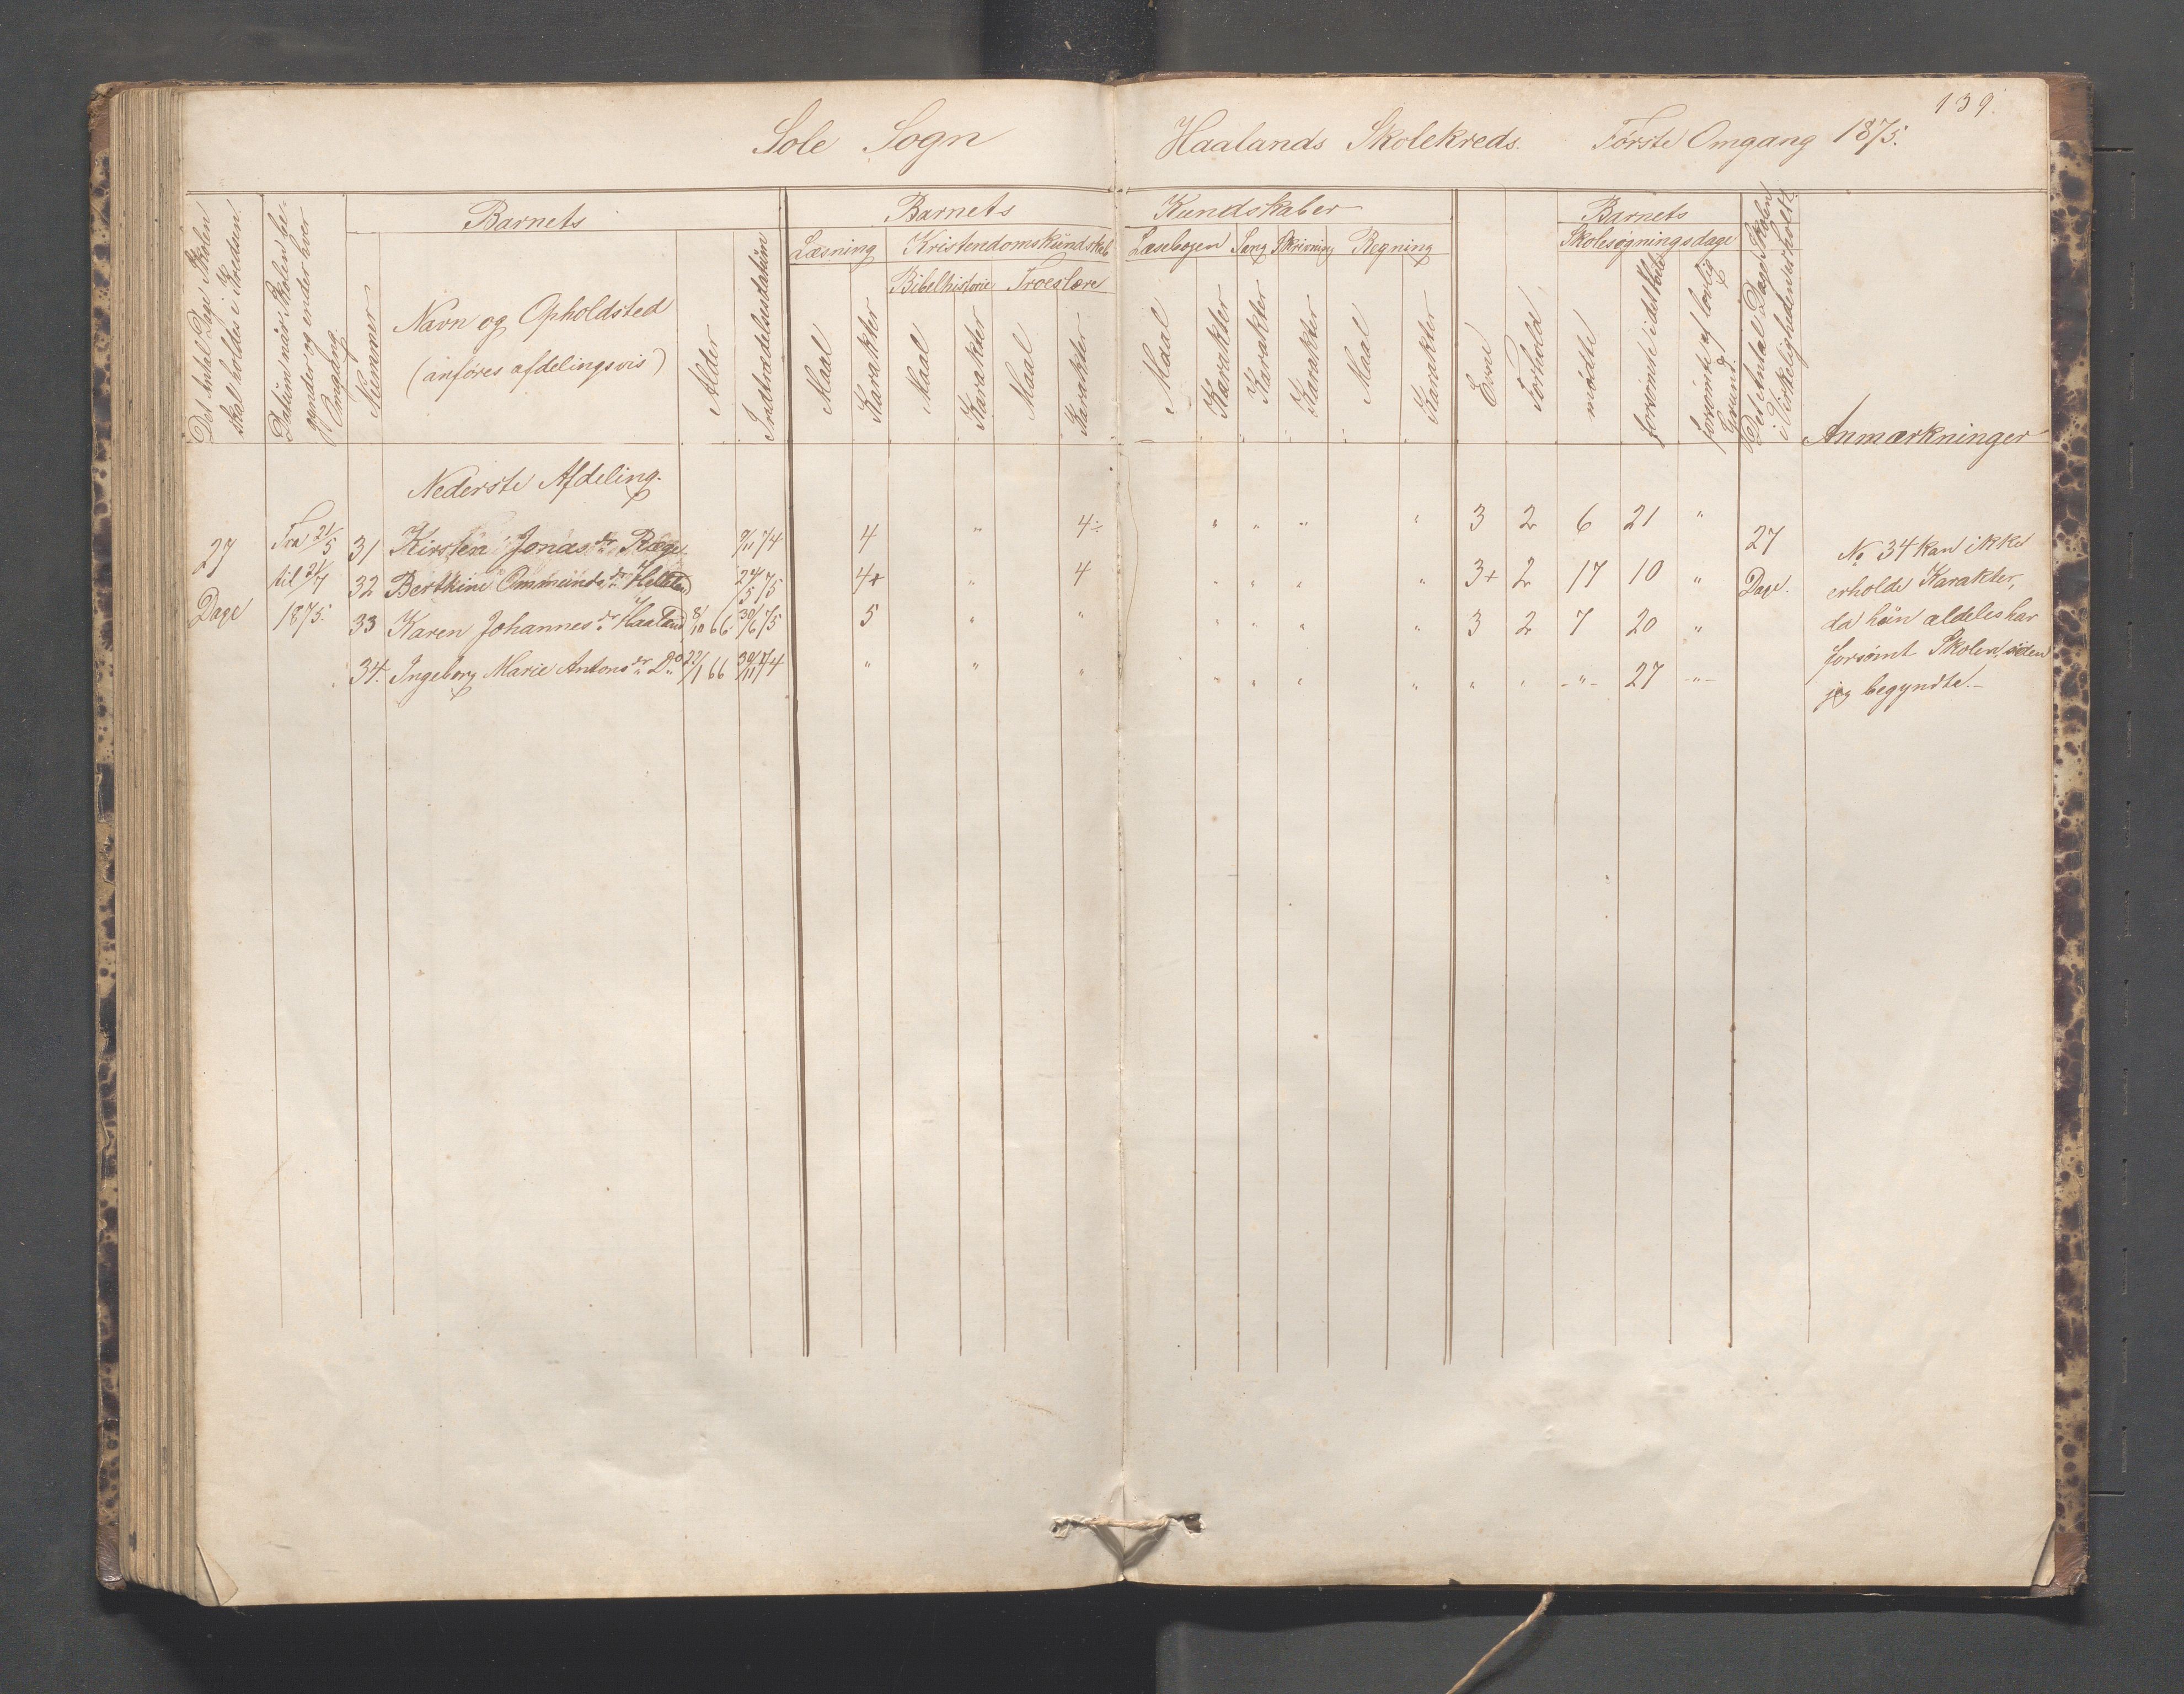 139.
Sole Sogn Haalands Skolekreds. Første Omgang 1875.
Det Antal Dage Skolen skal holdes i Kredsen.
Datum når Skolen be-
gynder og ender hver
Omgang.
Barnets
Nummer
Navn og Opholdsted
(anføres afdelingsvis)
Alder
Indtrædelsesdatum
Barnets Kundskaber
Læsning Kristendomskundskab
Bibelhistorie Troeslære
Maal Karakter Maal Karakter Maal Karakter
Læsebogen Sang Skrivning Regning
Maal Karakter Karakter Karakter Maal Karakter
Evne
Forhold
Barnets
Skolesøgningsdage
mødte
forsømte i det Hele
forsømte af lovlig Grund.
Det Antal Dage Skolen
i Virkeligheden er holdt.
Anmærkninger
Nederste Afdeling.
27 Fra 21/5 31 Kirsten Jonasdr Ræge 9/11 74 4 " 4÷ " " " " 3 2 6 21 " 27
til 21/7 32 Bertkine Ommundsdr Helleland 24/5 75 4+ " 4 " " " " 3+ 2 17 10 " Dage.
Dage 1875. 33 Karen Johannesdr Haaland 8/10 66 30/6 75 5 " " " " " " 3 2 7 20 "
34. Ingeborg Marie Antonsdr Do 22/1 66 30/11 74 " " " " " " " " " -"- 27 -"-
No 34 kan ikke
erholde Karakter,
da hün aldeles har
forsømt Skolen, siden
jeg begyndte.-